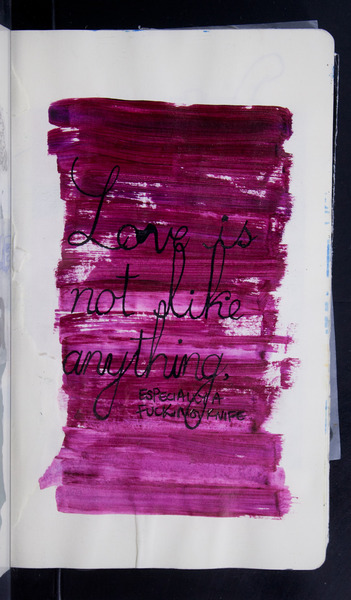 Love is
not like
anything,
ESPECIALLY A
FUCKING KNIFE